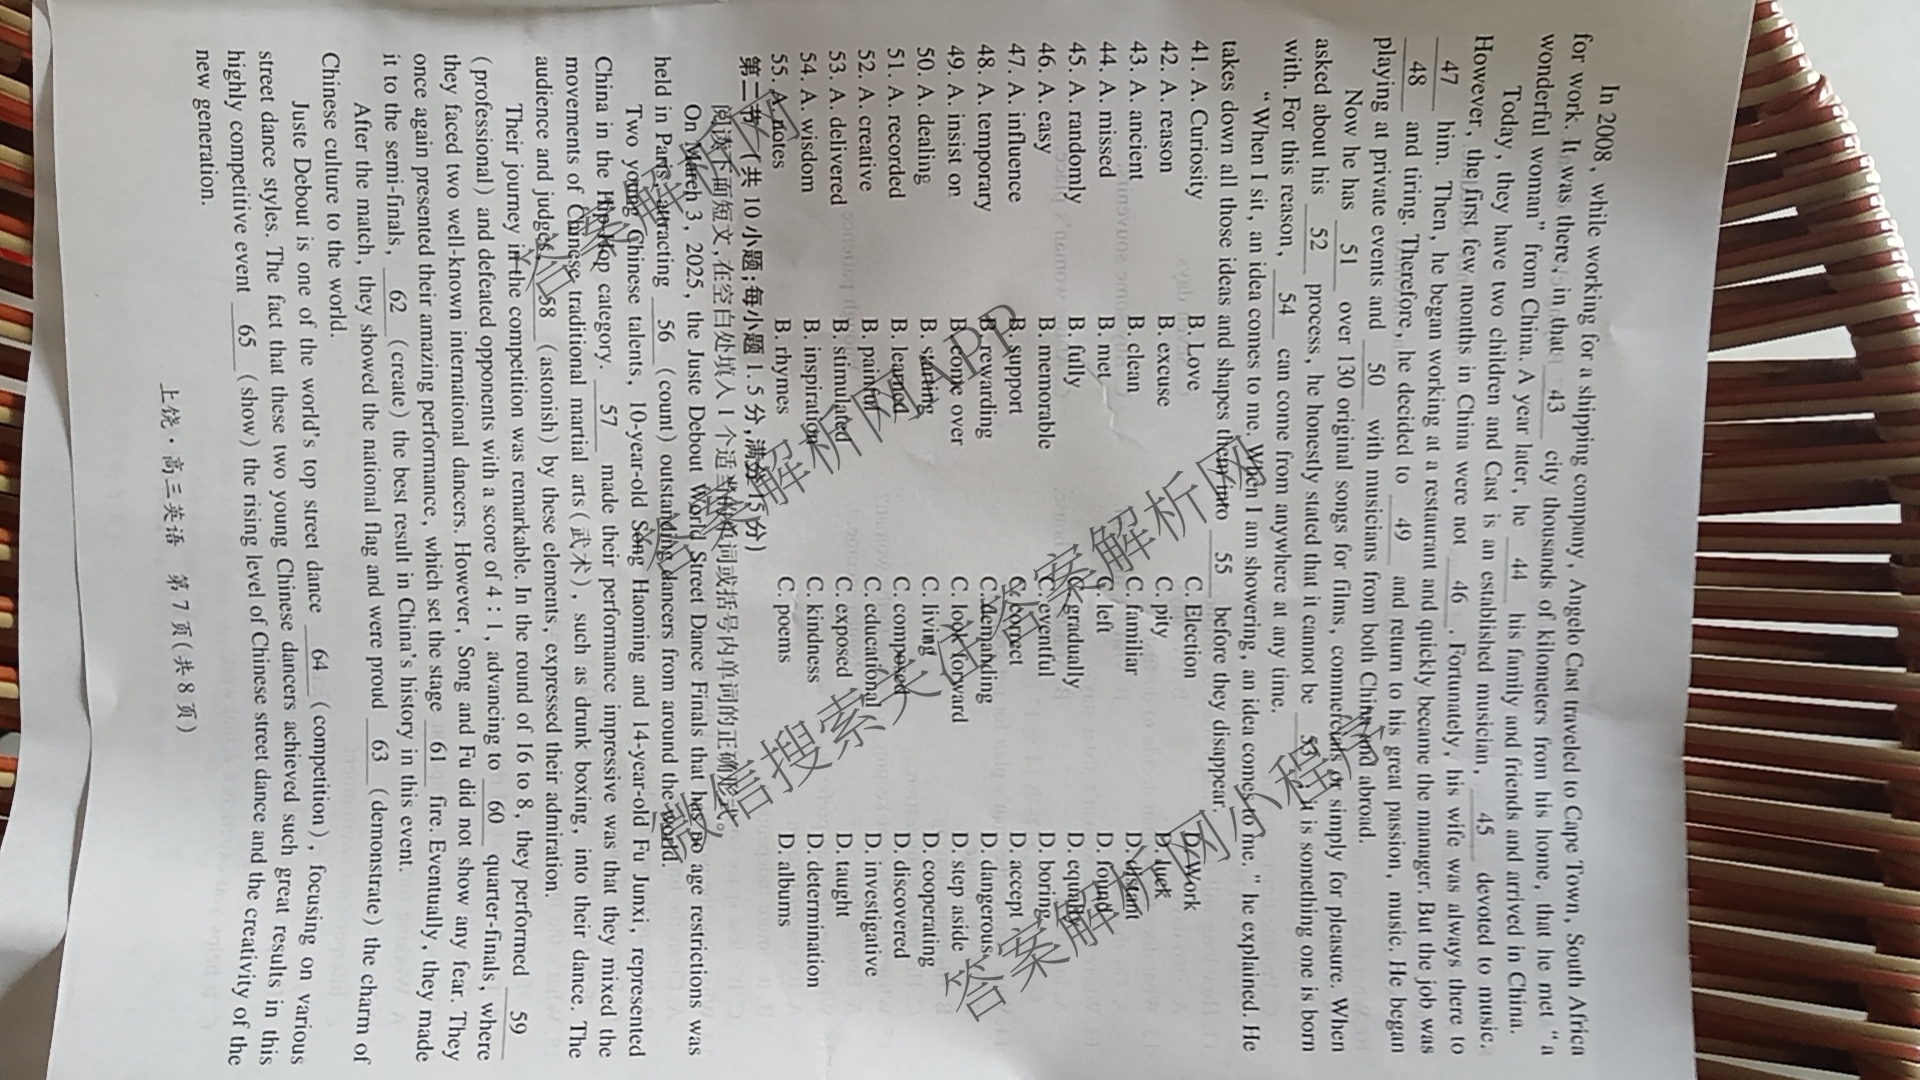 In 2008, while working for a shipping company, Angelo Cast traveled to Cape Town, South Africa
for work. It was there, in that 43 city thousands of kilometers from his home, that he met "a
wonderful woman" from China. A year later, he 44 his family and friends and arrived in China.
Today, they have two children and Cast is an established musician, 45 devoted to music.
However, the first few months in China were not 46 . Fortunately, his wife was always there to
47 him. Then, he began working at a restaurant and quickly became the manager. But the job was
48 and tiring. Therefore, he decided to 49 and return to his great passion, music. He began
playing at private events and 50 with musicians from both China and abroad.
Now he has 51 over 130 original songs for films, commercials or simply for pleasure. When
asked about his 52 process, he honestly stated that it cannot be 53 ; it is something one is born
with. For this reason, 54 can come from anywhere at any time.
"When I sit, an idea comes to me. When I am showering, an idea comes to me," he explained. He
takes down all those ideas and shapes them into 55 before they disappear.
41. A. Curiosity B. Love C. Election D. Work
42. A. reason B. excuse C. pity D. luck
43. A. ancient B. clean C. familiar D. distant
44. A. missed B. met C. left D. found
45. A. randomly B. fully C. gradually D. equally
46. A. easy B. memorable C. eventful D. boring
47. A. influence B. support C. correct D. accept
48. A. temporary B. rewarding C. demanding D. dangerous
49. A. insist on B. come over C. look forward D. step aside
50. A. dealing B. starting C. living D. cooperating
51. A. recorded B. learned C. composed D. discovered
52. A. creative B. painful C. educational D. investigative
53. A. delivered B. stimulated C. exposed D. taught
54. A. wisdom B. inspiration C. kindness D. determination
55. A. notes B. rhymes C. poems D. albums
第二节(共 10 小题;每小题 1.5 分,满分 15 分)
阅读下面短文,在空白处填入 1 个适当的单词或括号内单词的正确形式。
On March 3, 2025, the Juste Debout World Street Dance Finals that has no age restrictions was
held in Paris, attracting 56 (count) outstanding dancers from around the world.
Two young Chinese talents, 10-year-old Song Haoming and 14-year-old Fu Junxi, represented
China in the Hip Hop category. 57 made their performance impressive was that they mixed the
movements of Chinese traditional martial arts(武术), such as drunk boxing, into their dance. The
audience and judges, 58 (astonish) by these elements, expressed their admiration.
Their journey in the competition was remarkable. In the round of 16 to 8, they performed 59
(professional) and defeated opponents with a score of 4:1, advancing to 60 quarter-finals, where
they faced two well-known international dancers. However, Song and Fu did not show any fear. They
once again presented their amazing performance, which set the stage 61 fire. Eventually, they made
it to the semi-finals, 62 (create) the best result in China's history in this event.
After the match, they showed the national flag and were proud 63 (demonstrate) the charm of
Chinese culture to the world.
Juste Debout is one of the world's top street dance 64 (competition), focusing on various
street dance styles. The fact that these two young Chinese dancers achieved such great results in this
highly competitive event 65 (show) the rising level of Chinese street dance and the creativity of the
new generation.
上饶·高三英语 第 7 页(共 8 页)
答案解析网
答案解析网APP
微信搜索关注答案解析网
答案解析网小程序